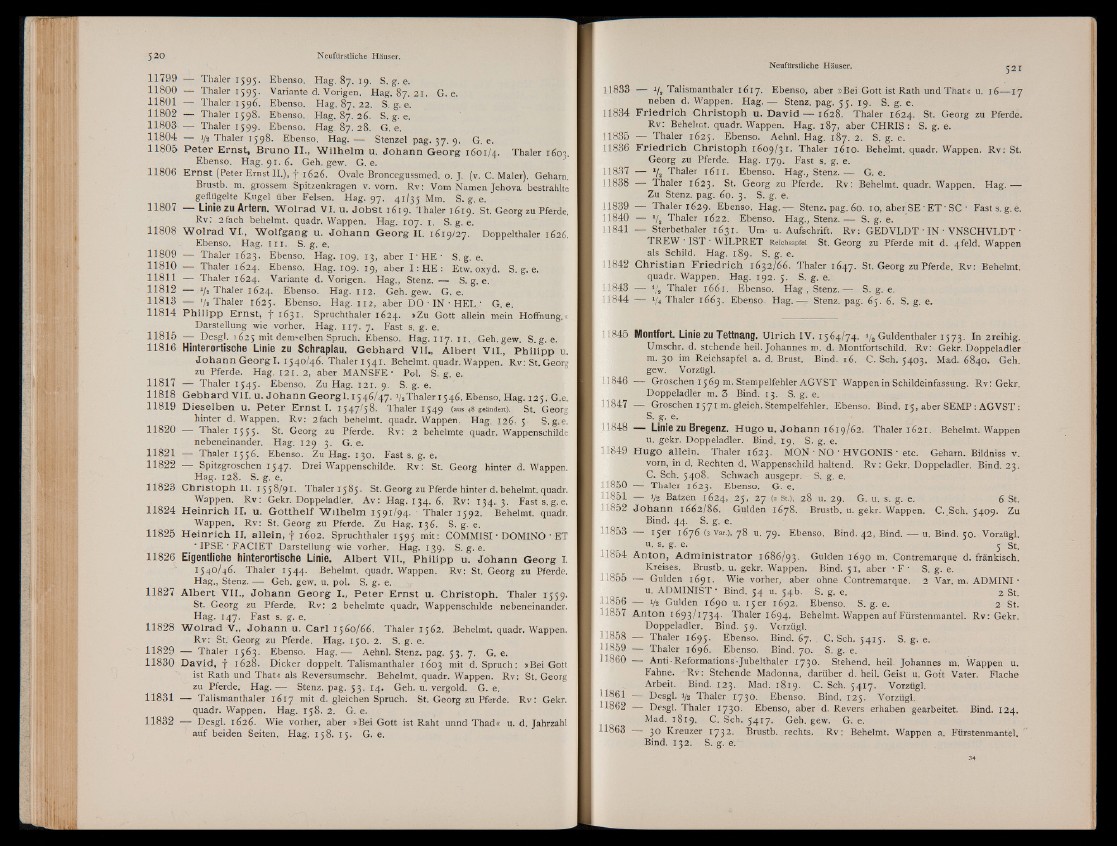 520
Neufürstliche Häuser.
11799 — Thaler 1595. Ebenso. Hag. 87. 19. S. g. e.
11800 — Thaler 1595. Variante d. Vorigen. Hag. 87. 21. G. e.
11801 — Thaler 1596. Ebenso. Hag. 87. 22. S. g. e.
11802 — Thaler 1598. Ebenso. Hag. 87. 26. S. g. e.
11803 — Thaler 1599. Ebenso. Hag. 87. 28. G. e.
11804 — ½ Thaler 1598. Ebenso. Hag. — Stenzel pag. 37. 9. G. e.
11805 Peter Ernst, Bruno II., Wilhelm u. Johann Georg 1601/4. Thaler 1603.
Ebenso. Hag. 91. 6. Geh. gew. G. e.
11806 Ernst (Peter Ernst II.), † 1626. Ovale Broncegussmed. o. J. (v. C. Maler). Geharn.
Brustb. m. grossem Spitzenkragen v. vorn. Rv: Vom Namen Jehova bestrahlte
geflügelte Kugel über Felsen. Hag. 97. 41/35 Mm. S. g. e.
11807 — Linie zu Artern. Wolrad VI. u. Jobst 1619. Thaler 1619. St. Georg zu Pferde.
Rv: 2fach behelmt. quadr. Wappen. Hag. 107. 1. S. g. e.
11808 Wolrad VI., Wolfgang u. Johann Georg II. 1619/27. Doppelthaler 1626.
Ebenso. Hag. 111. S. g. e.
11809 — Thaler 1623. Ebenso. Hag. 109. 13, aber I · HE · S. g. e.
11810 — Thaler 1624. Ebenso. Hag. 109. 19, aber I : HE : Etw. oxyd. S. g. e.
11811 — Thaler 1624. Variante d. Vorigen. Hag., Stenz. — S. g. e.
11812 — ½ Thaler 1624. Ebenso. Hag. 112. Geh. gew. G. e.
11813 — ½ Thaler 1625. Ebenso. Hag. 112, aber DO · IN · HEL · G. e.
11814 Philipp Ernst, † 1631. Spruchthaler 1624. »Zu Gott allein mein Hoffnung.«
Darstellung wie vorher. Hag. 117. 7. Fast s. g. e.
11815 — Desgl. 1625 mit demselben Spruch. Ebenso. Hag. 117. 11. Geh. gew. S. g. e.
11816 Hinterortische Linie zu Schraplau. Gebhard VII., Albert VII., Philipp u.
Johann Georg I. 1540/46. Thaler 1541. Behelmt. quadr. Wappen. Rv: St. Georg
zu Pferde. Hag. 121. 2, aber MANSFE · Pol. S. g. e.
11817 — Thaler 1545. Ebenso. Zu Hag. 121. 9. S. g. e.
11818 Gebhard VII. u. Johann Georg I. 1546/47. ½ Thaler 1546. Ebenso, Hag. 125. G. e.
11819 Dieselben u. Peter Ernst I. 1547/58. Thaler 1549 (aus 48 geändert). St. Georg
hinter d. Wappen. Rv: 2fach behelmt. quadr. Wappen. Hag. 126. 5 S. g. e.
11820 — Thaler 1555. St. Georg zu Pferde. Rv: 2 behelmte quadr. Wappenschilde
nebeneinander. Hag. 129 3. G. e.
11821 — Thaler 1556. Ebenso. Zu Hag. 130. Fast s. g. e.
11822 — Spitzgroschen 1547. Drei Wappenschilde. Rv: St. Georg hinter d. Wappen.
Hag. 128. S. g. e.
11823 Christoph II. 1558/91. Thaler 1585. St. Georg zu Pferde hinter d. behelmt. quadr.
Wappen. Rv: Gekr. Doppeladler. Av: Hag. 134. 6. Rv: 134. 3. Fast s. g. e.
11824 Heinrich II. u. Gotthelf Wilhelm 1591/94. Thaler 1592. Behelmt. quadr.
Wappen. Rv: St. Georg zu Pferde. Zu Hag. 136. S. g. e.
11825 Heinrich II. allein, † 1602. Spruchthaler 1595 mit: COMMISI · DOMINO · ET
· IPSE · FACIET Darstellung wie vorher. Hag. 139. S. g. e.
11826 Eigentliche hinterortische Linie. Albert VII., Philipp u. Johann Georg I.
1540/46. Thaler 1544. Behelmt. quadr. Wappen. Rv: St. Georg zu Pferde.
Hag., Stenz. — Geh. gew. u. pol. S. g. e.
11827 Albert VII., Johann Georg I., Peter Ernst u. Christoph. Thaler 1559.
St. Georg zu Pferde. Rv: 2 behelmte quadr. Wappenschilde nebeneinander.
Hag. 147. Fast s. g. e.
11828 Wolrad V., Johann u. Carl 1560/66. Thaler 1562. Behelmt. quadr. Wappen.
Rv: St. Georg zu Pferde. Hag. 150. 2. S. g. e.
11829 — Thaler 1563. Ebenso. Hag. — Aehnl. Stenz. pag. 53. 7. G. e.
11830 David, † 1628. Dicker doppelt. Talismanthaler 1603 mit d. Spruch: »Bei Gott
ist Rath und That« als Reversumschr. Behelmt. quadr. Wappen. Rv: St. Georg
zu Pferde. Hag. — Stenz. pag. 53. 14. Geh. u. vergold. G. e.
11831 — Talismanthaler 1617 mit d. gleichen Spruch. St. Georg zu Pferde. Rv: Gekr.
quadr. Wappen. Hag. 158. 2. G. e.
11832 — Desgl. 1626. Wie vorher, aber »Bei Gott ist Raht unnd Thad« u. d. Jahrzahl
auf beiden Seiten. Hag. 158. 15. G. e.
Neufürstliche Häuser.
521
11833 — ½ Talismanthaler 1617. Ebenso, aber »Bei Gott ist Rath und That« u. 16—17
neben d. Wappen. Hag. — Stenz. pag. 55. 19. S. g. e.
11834 Friedrich Christoph u. David — 1628. Thaler 1624. St. Georg zu Pferde.
Rv: Behelmt. quadr. Wappen. Hag. 187, aber CHRIS : S. g. e.
11835 — Thaler 1625. Ebenso. Aehnl. Hag. 187. 2. S. g. e.
11836 Friedrich Christoph 1609/31. Thaler 1610. Behelmt. quadr. Wappen. Rv: St.
Georg zu Pferde. Hag. 179. Fast s. g. e.
11837 — ½ Thaler 1611. Ebenso. Hag., Stenz. — G. e.
11838 — Thaler 1623. St. Georg zu Pferde. Rv: Behelmt. quadr. Wappen. Hag. —
Zu Stenz. pag. 60. 3. S. g. e.
11839 — Thaler 1629. Ebenso. Hag. — Stenz. pag. 60. 10, aber SE · ET · SC · Fast s. g. e.
11840 — ½ Thaler 1622. Ebenso. Hag., Stenz. — S. g. e.
11841 — Sterbethaler 1631. Um- u. Aufschrift. Rv: GEDVLDT · IN · VNSCHVLDT ·
TREW · IST · WILPRET Reichsapfel St. Georg zu Pferde mit d. 4feld. Wappen
als Schild. Hag. 189. S. g. e.
11842 Christian Friedrich 1632/66. Thaler 1647. St. Georg zu Pferde. Rv: Behelmt.
quadr. Wappen. Hag. 192. 5. S. g. e.
11843 — ½ Thaler 1661. Ebenso. Hag., Stenz. — S. g. e.
11844 — ¼ Thaler 1663. Ebenso. Hag. — Stenz. pag. 65. 6. S. g. e.
11845 Montfort. Linie zu Tettnang. Ulrich IV. 1564/74. ½ Guldenthaler 1573. In 2reihig.
Umschr. d. stehende heil. Johannes m. d. Montfortschild. Rv: Gekr. Doppeladler
m. 30 im Reichsapfel a. d. Brust. Bind. 16. C. Sch. 5403. Mad. 6840. Geh.
gew. Vorzügl.
11846 — Groschen 1569 m. Stempelfehler AGVST Wappen in Schildeinfassung. Rv: Gekr.
Doppeladler m. 3 Bind. 13. S. g. e.
11847 — Groschen 1571 m. gleich. Stempelfehler. Ebenso. Bind. 15, aber SEMP : AGVST :
S. g. e.
11848 — Linie zu Bregenz. Hugo u. Johann 1619/62. Thaler 1621. Behelmt. Wappen
u. gekr. Doppeladler. Bind. 19. S. g. e.
11849 Hugo allein. Thaler 1623. MON · NO · HVGONIS · etc. Geharn. Bildniss v.
vorn, in d. Rechten d. Wappenschild haltend. Rv: Gekr. Doppeladler. Bind. 23.
C. Sch. 5408. Schwach ausgepr. S. g. e.
11850 — Thaler 1623. Ebenso. G. e.
11851 — ½ Batzen 1624, 25, 27 (2 St.), 28 u. 29. G. u. s. g. e. 6 St.
11852 Johann 1662/86. Gulden 1678. Brustb. u. gekr. Wappen. C. Sch. 5409. Zu
Bind. 44. S. g. e.
11853 — 15er 1676 (2 Var.), 78 u. 79. Ebenso. Bind. 42, Bind. — u. Bind. 50. Vorzügl.
u. s. g. e. 5 St.
11854 Anton, Administrator 1686/93. Gulden 1690 m. Contremarque d. fränkisch.
Kreises. Brustb. u. gekr. Wappen. Bind. 51, aber · F · S. g. e.
11855 — Gulden 1691. Wie vorher, aber ohne Contremarque. 2 Var. m. ADMINI ·
u. ADMINIST · Bind. 54 u. 54b. S. g. e. 2 St.
11856 — ½ Gulden 1690 u. 15er 1692. Ebenso. S. g. e. 2 St.
11857 Anton 1693/1734. Thaler 1694. Behelmt. Wappen auf Fürstenmantel. Rv: Gekr.
Doppeladler. Bind. 59. Vorzügl.
11858 — Thaler 1695. Ebenso. Bind. 67. C. Sch. 5415. S. g. e.
11859 — Thaler 1696. Ebenso. Bind. 70. S. g. e.
11860 — Anti-Reformations-Jubelthaler 1730. Stehend. heil. Johannes m. Wappen u.
Fahne. Rv: Stehende Madonna, darüber d. heil. Geist u. Gott Vater. Flache
Arbeit. Bind. 123. Mad. 1819. C. Sch. 5417. Vorzügl.
11861 — Desgl. ½ Thaler 1730. Ebenso. Bind. 125. Vorzügl.
11862 — Desgl. Thaler 1730. Ebenso, aber d. Revers erhaben gearbeitet. Bind. 124.
Mad. 1819. C. Sch. 5417. Geh. gew. G. e.
11863 — 30 Kreuzer 1732. Brustb. rechts. Rv: Behelmt. Wappen a. Fürstenmantel.
Bind. 132. S. g. e.
34